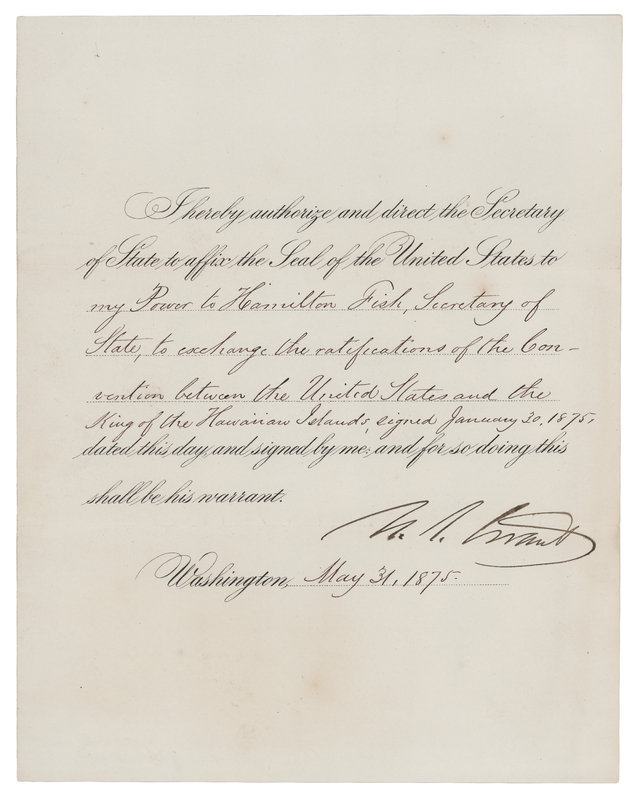 I hereby authorize and direct the Secretary
of State to affix the Seal of the United States to
my Power to Hamilton Fish, Secretary of
State, to exchange the ratifications of the Con-
vention between the United States and the
King of the Hawaiian Islands, signed January 30, 1875,
dated this day, and signed by me; and for so doing this
shall be his warrant.
U. S. Grant
Washington, May 31, 1875.